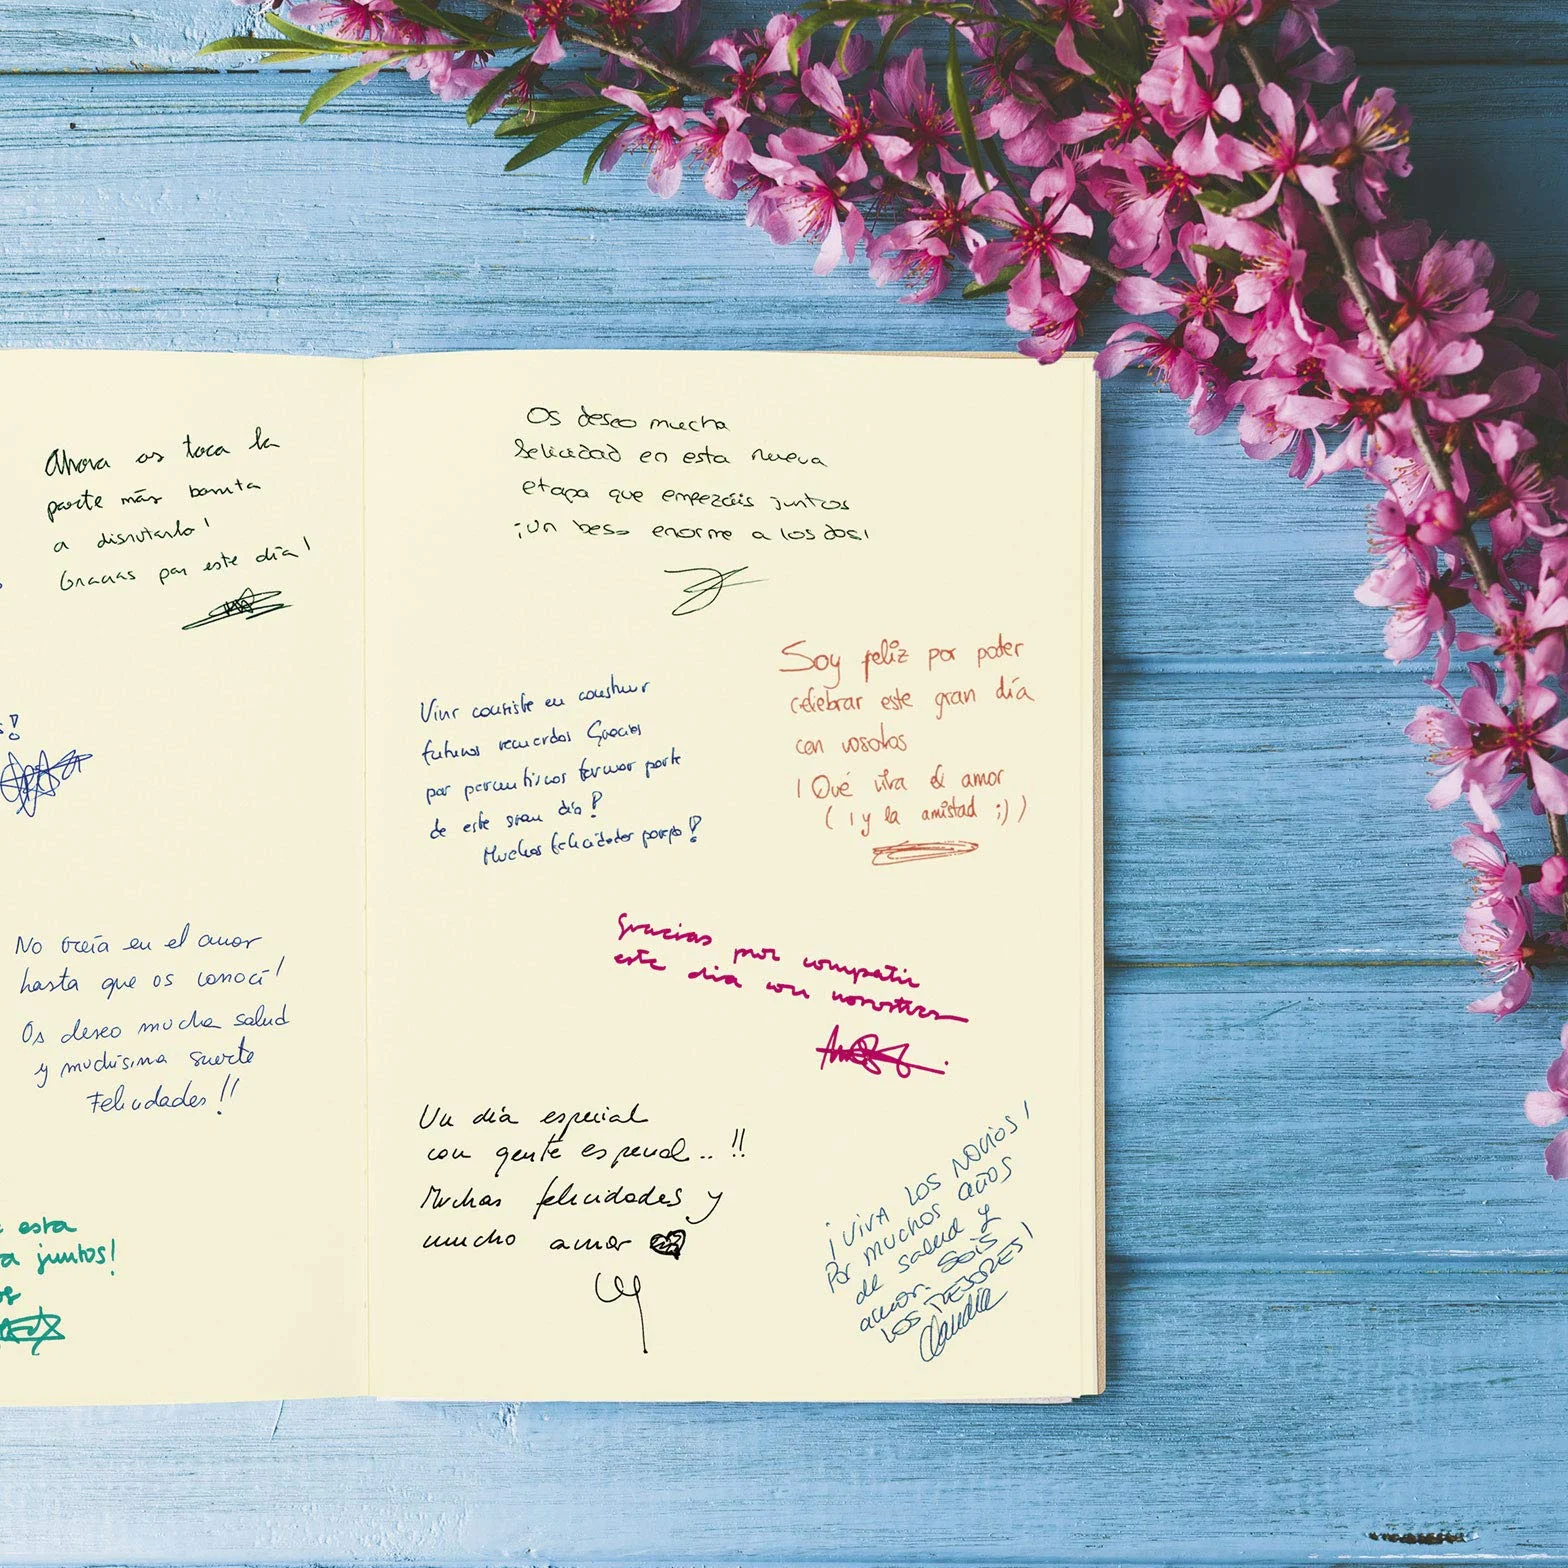 Ahora os toca la
parte más bonita
a disfrutarlo!
Gracias por este día!
s!
No creía en el amor
hasta que os conocí!
Os deseo mucha salud
y muchísima suerte
Felicidades!!
esta
a juntos!
Os deseo mucha
felicidad en esta nueva
etapa que empezáis juntos
¡Un beso enorme a los dos!
Vivir consiste en construir
futuros recuerdos Gracias
por permitirnos formar parte
de este gran día!
Muchas felicidades pareja!
Soy feliz por poder
celebrar este gran día
con vosotros
¡Qué viva el amor
(¡y la amistad ;))
Gracias por compartir
este día con nosotros
Un día especial
con gente especial..!!
Muchas felicidades y
mucho amor
¡VIVA LOS NOVIOS!
Por muchos años
de salud y
amor. Sois
LOS MEJORES!
Claudia